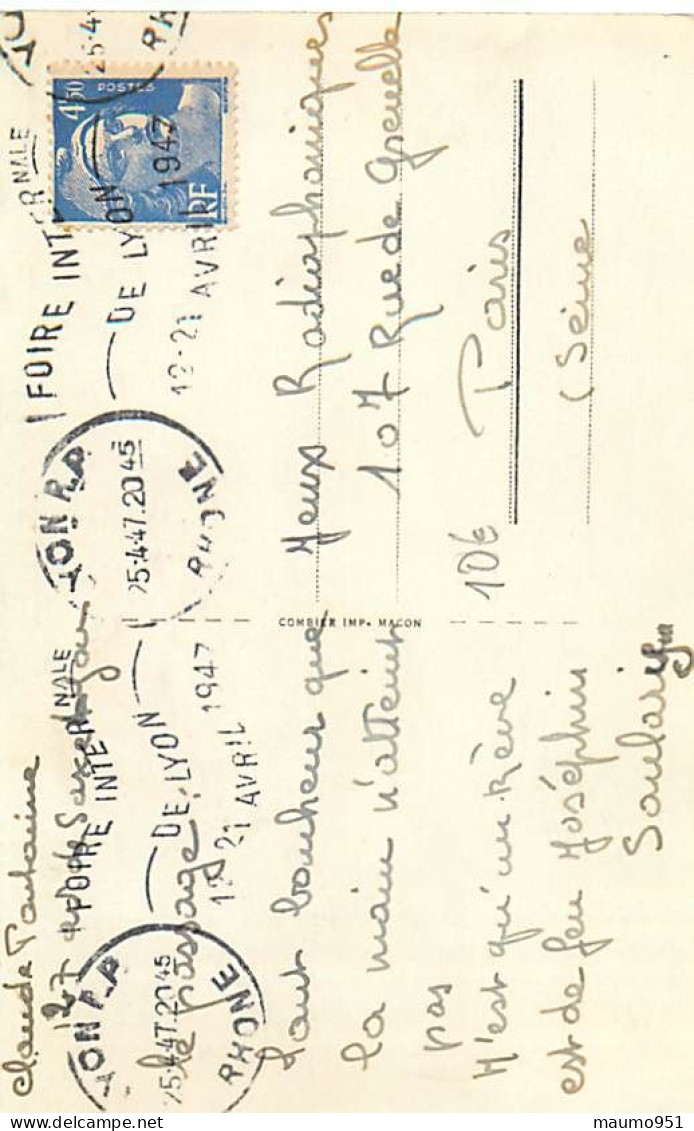 Claude Fontaine
127 Lyon
le passage
"Tout bonheur que
la main n'atteint
pas
N'est qu'un Rêve
est de feu Joséphin
Soulary
COMBIER IMP. MACON
Jeux Radiophoniques
107 Rue de Grenelle
Paris
(Seine
10€
4F50
POSTES
RF
FOIRE INTERNALE
DE LYON
12-21 AVRIL 1947
LYON R.P
25-4-47.2045
RHONE
FOIRE INTERNALE
DE LYON
12-21 AVRIL 1947
LYON R.P
25-4-47.2045
RHONE
25-4
RH
maumo951